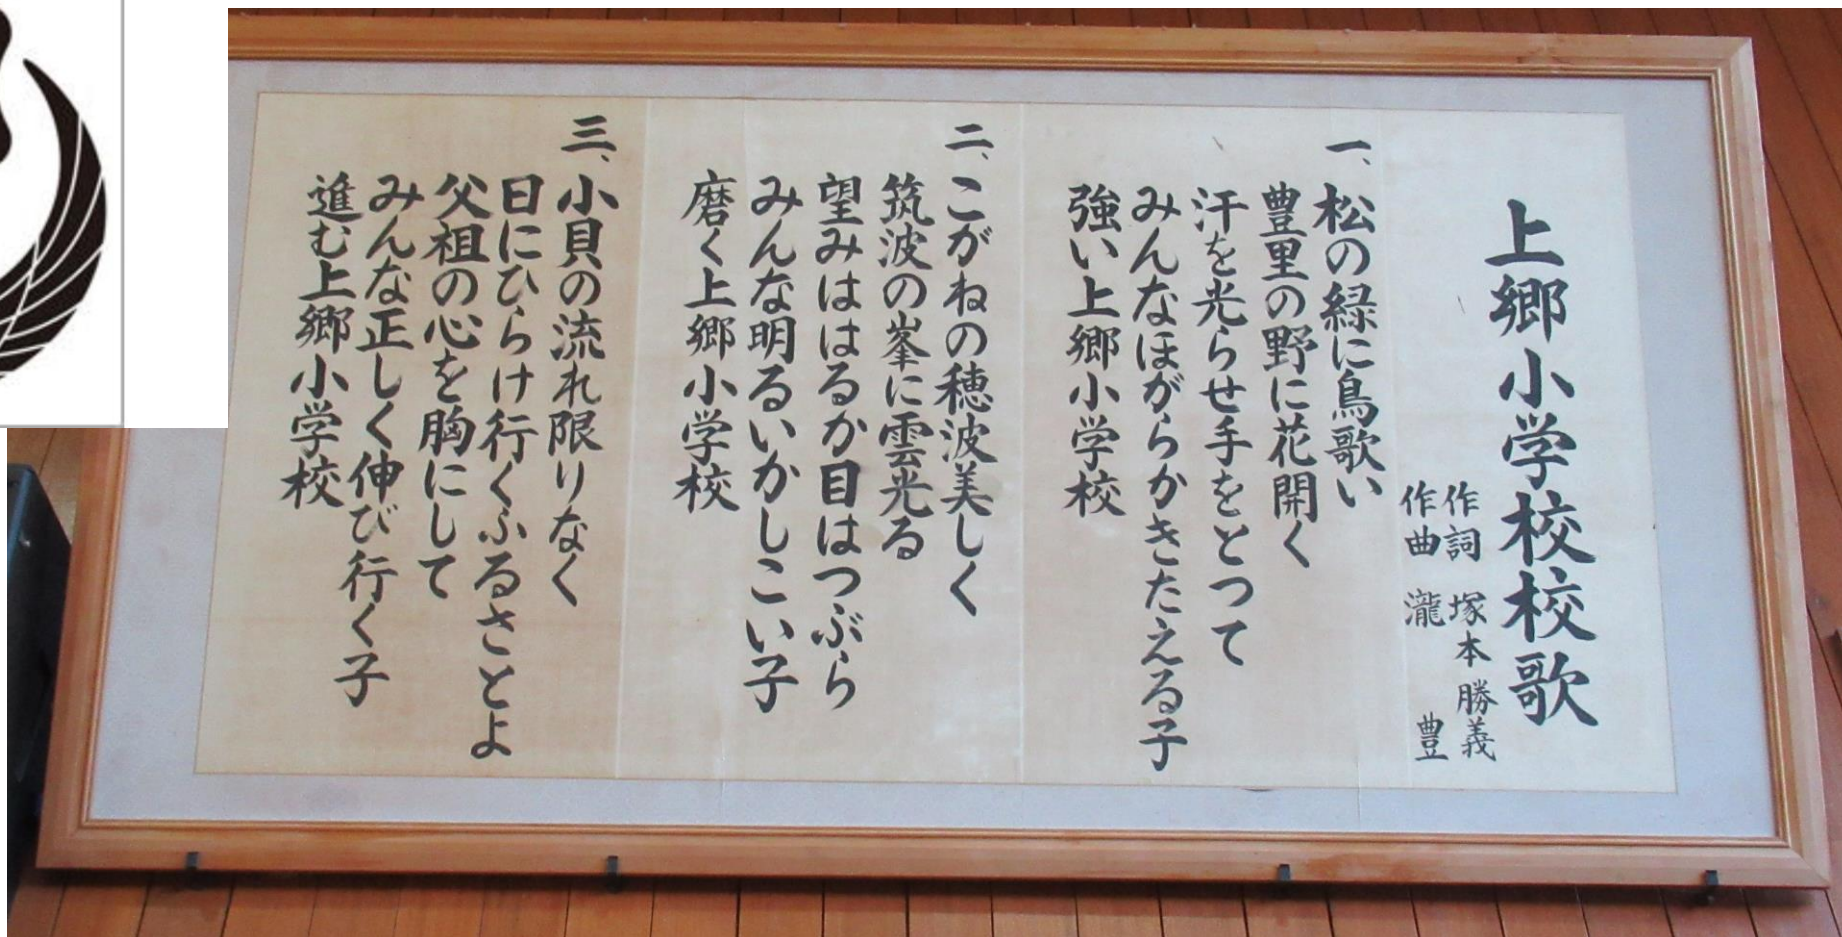 上郷小学校校歌
作詞 塚本勝義
作曲 瀧 豊
一、松の緑に鳥歌い
豊里の野に花開く
汗を光らせ手をとつて
みんなほがらかきたえる子
強い上郷小学校
二、こがねの穂波美しく
筑波の峯に雲光る
望みははるか目はつぶら
みんな明るいかしこい子
磨く上郷小学校
三、小貝の流れ限りなく
日にひらけ行くふるさとよ
父祖の心を胸にして
みんな正しく伸び行く子
進む上郷小学校